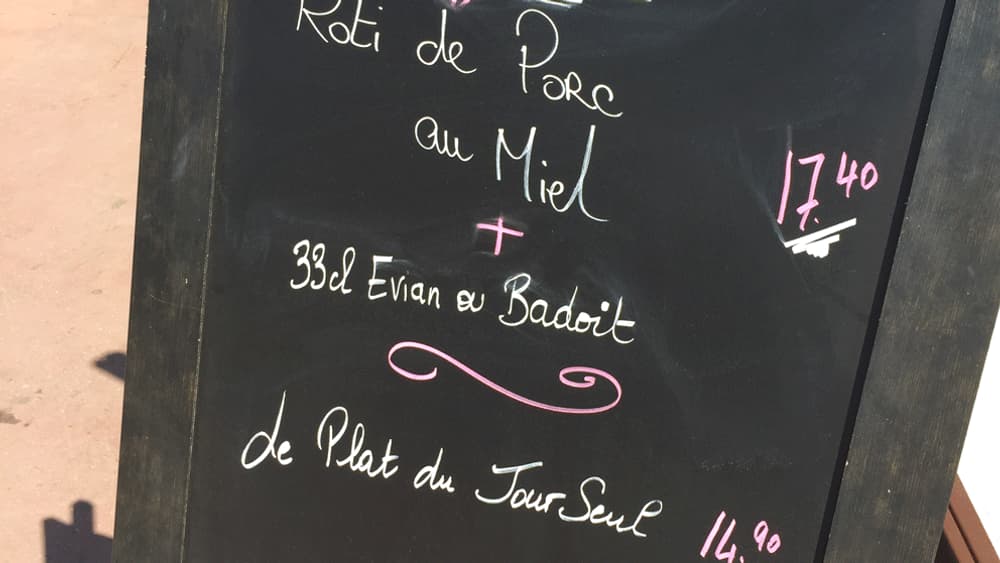 Roti de Porc
au Miel
17.40
+
33cl Evian ou Badoit
Le Plat du Jour Seul
14.90